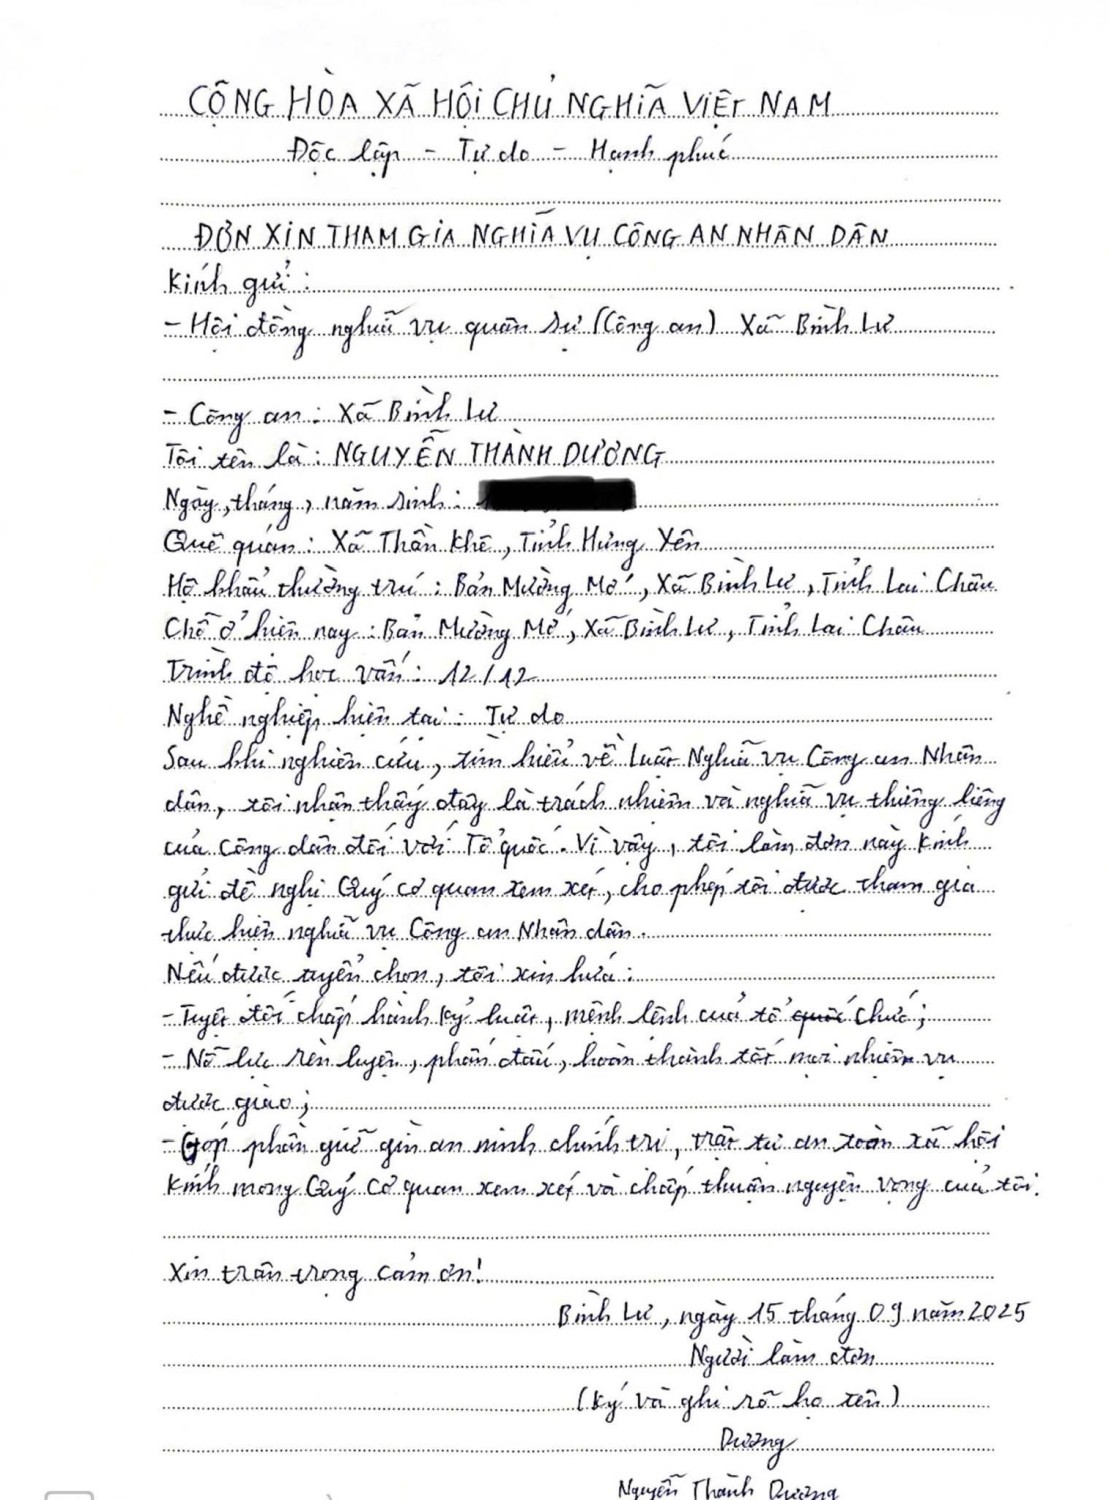 CỘNG HÒA XÃ HỘI CHỦ NGHĨA VIỆT NAM
Độc lập - Tự do - Hạnh phúc
ĐƠN XIN THAM GIA NGHĨA VỤ CÔNG AN NHÂN DÂN
Kính gửi :
- Hội đồng nghĩa vụ quân sự (Công an) Xã Bình Lư
- Công an : Xã Bình Lư
Tôi tên là : NGUYỄN THÀNH DƯƠNG
Ngày, tháng, năm sinh :
Quê quán : Xã Thần Khê, Tỉnh Hưng Yên
Hộ khẩu thường trú : Bản Mường Mớ, Xã Bình Lư, Tỉnh Lai Châu
Chỗ ở hiện nay : Bản Mường Mớ, Xã Bình Lư, Tỉnh Lai Châu
Trình độ học vấn : 12/12
Nghề nghiệp hiện tại : Tự do
Sau khi nghiên cứu, tìm hiểu về Luật Nghĩa vụ Công an Nhân
dân, tôi nhận thấy đây là trách nhiệm và nghĩa vụ thiêng liêng
của công dân đối với Tổ quốc. Vì vậy, tôi làm đơn này kính
gửi đề nghị Quý cơ quan xem xét, cho phép tôi được tham gia
thực hiện nghĩa vụ Công an Nhân dân.
Nếu được tuyển chọn, tôi xin hứa :
- Tuyệt đối chấp hành kỷ luật, mệnh lệnh của tổ quốc chức;
- Nỗ lực rèn luyện, phấn đấu, hoàn thành tốt mọi nhiệm vụ
được giao;
- Góp phần giữ gìn an ninh chính trị, trật tự an toàn xã hội
Kính mong Quý cơ quan xem xét và chấp thuận nguyện vọng của tôi.
Xin trân trọng cảm ơn!
Bình Lư, ngày 15 tháng 09 năm 2025
Người làm đơn
(Ký và ghi rõ họ tên)
Dương
Nguyễn Thành Dương